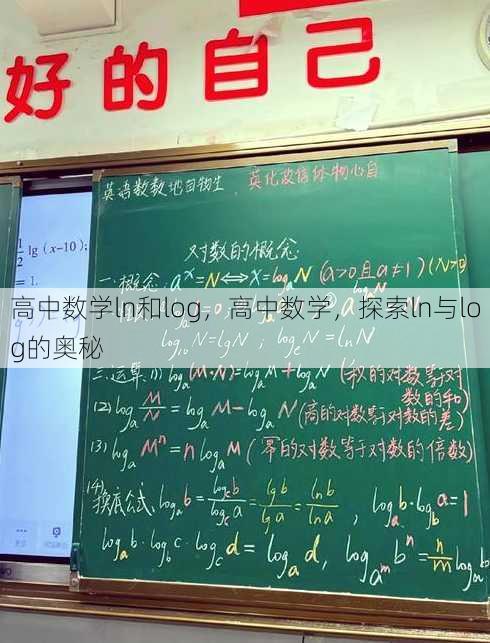 好的自己
英语数数地自物生、英化政信体物心自
1/2 lg (x-10);
= 1.
对数的概念
一.概念: aˣ=N⟺x=logₐN (a>0且a≠1) (N>0)
高中数学ln和log，高中数学，探索ln与lo
g的奥秘
log₁₀N=lgN; logₑN=lnN
三.运算: (1) logₐ(M·N)=logₐM+logₐN (积的对数等于对
数的和)
(2) logₐ M/N = logₐM-logₐN (商的对数等于对数的差)
(3) logₐMⁿ=n logₐM (幂的对数等于对数的倍数)
(4)
换底公式: logₐb = log꜀b/log꜀a = lgb/lga = lnb/lna, logₐb·log_b a=1
logₐb·log_b c·log꜀d=logₐd, log_{aᵐ}bⁿ=n/m logₐb